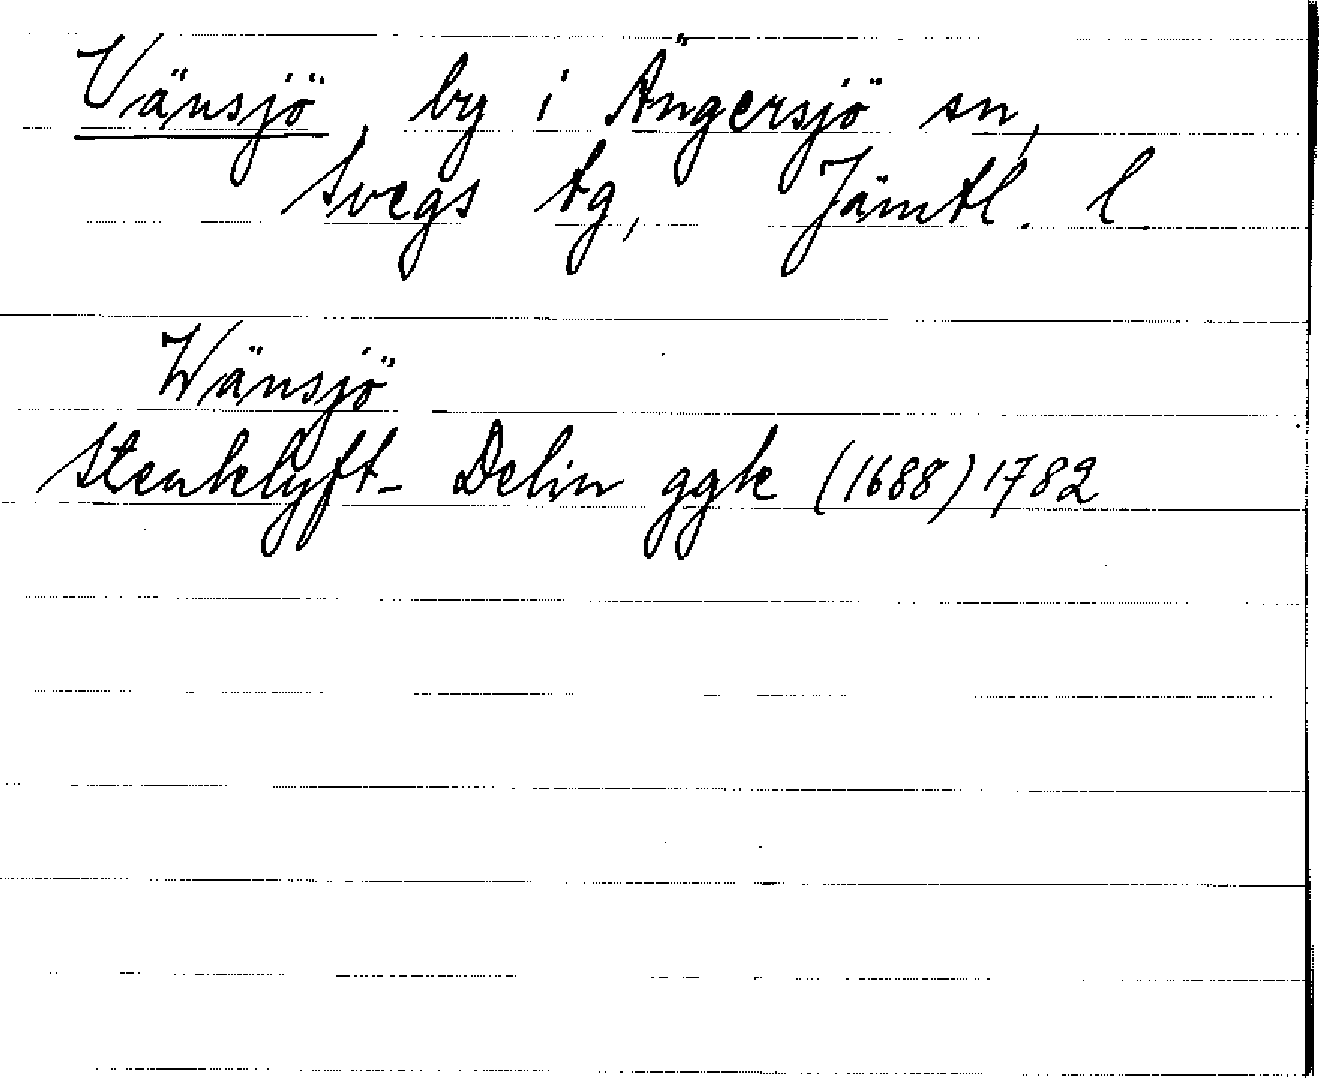 Vänsjö, by i Ängersjö sn,
Svegs tg, Jämtl. l
Wänsjö
Stenklyft- Delin ggk (1688) 1782